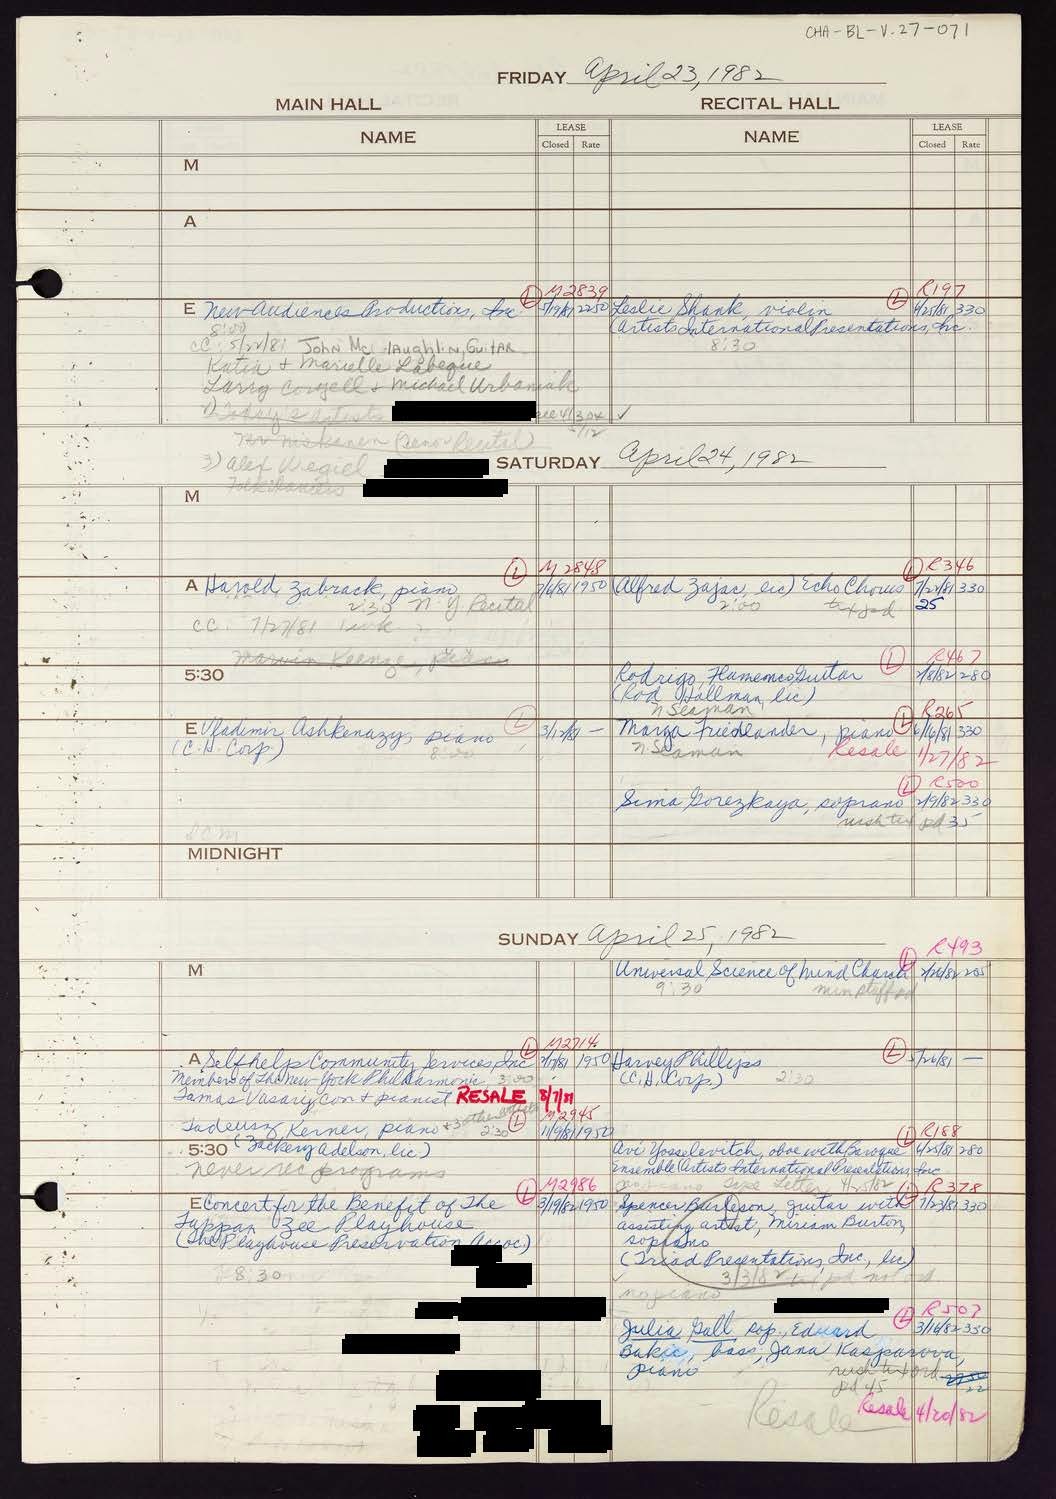 CHA-BL-V.27-071
FRIDAY April 23, 1982
MAIN HALL
RECITAL HALL
NAME
LEASE
Closed Rate
NAME
LEASE
Closed Rate
M
A
L M2839
E New Audiences Productions, Inc. 5/19/81 2250
8:00
CC: 5/22/81 John McLaughlin, Guitar
Katia + Marielle Labeque
Larry Coryell + Michael Urbaniak
1) Today's Artists see 4/30
(Tenor Recital)
3) Alex
Folk Dancers
L R197
Leslie Shank, violin 4/25/81 330
(Artists International Presentations, Inc.
8:30
SATURDAY April 24, 1982
M
L M2848
A Harold Zabrack, piano 7/6/81 1950
2:30 N.Y. Recital
CC: 7/27/81
Marvin Keenze,
L R346
(Alfred Zajac, lic) Echo Chorus 7/27/81 330
2:00 tx pd 25
5:30
L R467
Rodrigo, Flamenco Guitar 2/8/82 280
(Rod Hallman, lic)
N Seaman
E Vladimir Ashkenazy, piano L 3/12/81 —
(C.H. Corp) 8:00
L R265
Marya Friedlander, piano 6/16/81 330
N. Seaman Resale 1/27/82
L R500
Sima Gorezkaya, soprano 2/9/82 330
rush tx pd 35
MIDNIGHT
SUNDAY April 25, 1982
M
L R493
Universal Science of Mind Church 205
9:30 min staff pd
L M2714
A Selfhelp Community Services, Inc 1950
Members of The New York Philharmonic 3:00
Tamas Vasary Con + pianist RESALE 8/7/81
+ 3 other artists L M2945
Tadeusz Kerner, piano 2:30 11/9/81 1950
(Zackery Adelson, lic.)
Harvey Phillips L 5/26/81 —
(C.H. Corp.) 2:30
5:30
never rec programs
L R188
Avi Yosselevitch, oboe with Baroque 4/25/81 280
Ensemble (Artists International Presentations, Inc
See Letter
L M2986
E Concert for the Benefit of The 3/19/82 1950
Tappan Zee Playhouse
(The Playhouse Preservation Assoc)
8:30
L R378
Spencer Burleson, guitar with 7/23/81 330
assisting artist, Miriam Burton,
soprano
(Triad Presentations, Inc., lic)
3/3/82 tx pd not ord.
no piano
L R507
Julia Gall sop., Eduard 3/16/82 330
Bakic, bass, Jana Kasparova,
piano rush tx ord
pd 45 22
Resale 4/20/82
Resale